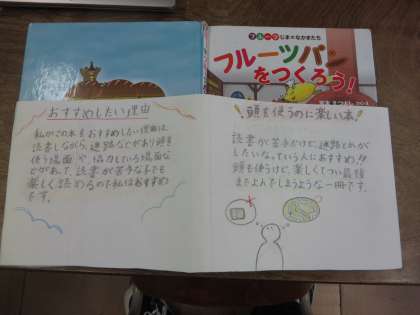 フルーツじま★なかまたち
フルーツパン
をつくろう!
おすすめしたい理由
私がこの本をおすすめしたい理由は、
読書しながら、迷路などがあり頭を
使う場面や協力している場面な
どがあって、読書が苦手な子でも
楽しく読めるので私はおすすめ
です。
頭を使うのに楽しい本!
読書が苦手だけど、迷路とかが
したいなっていう人におすすめ!!
頭も使うけど、楽しくてつい最後
までよんでしまうような一冊です。